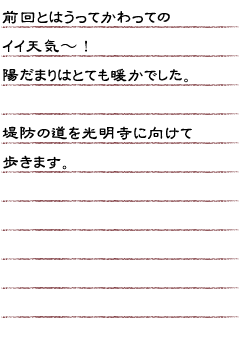 前回とはうってかわっての
イイ天気～！
陽だまりはとても暖かでした。
堤防の道を光明寺に向けて
歩きます。